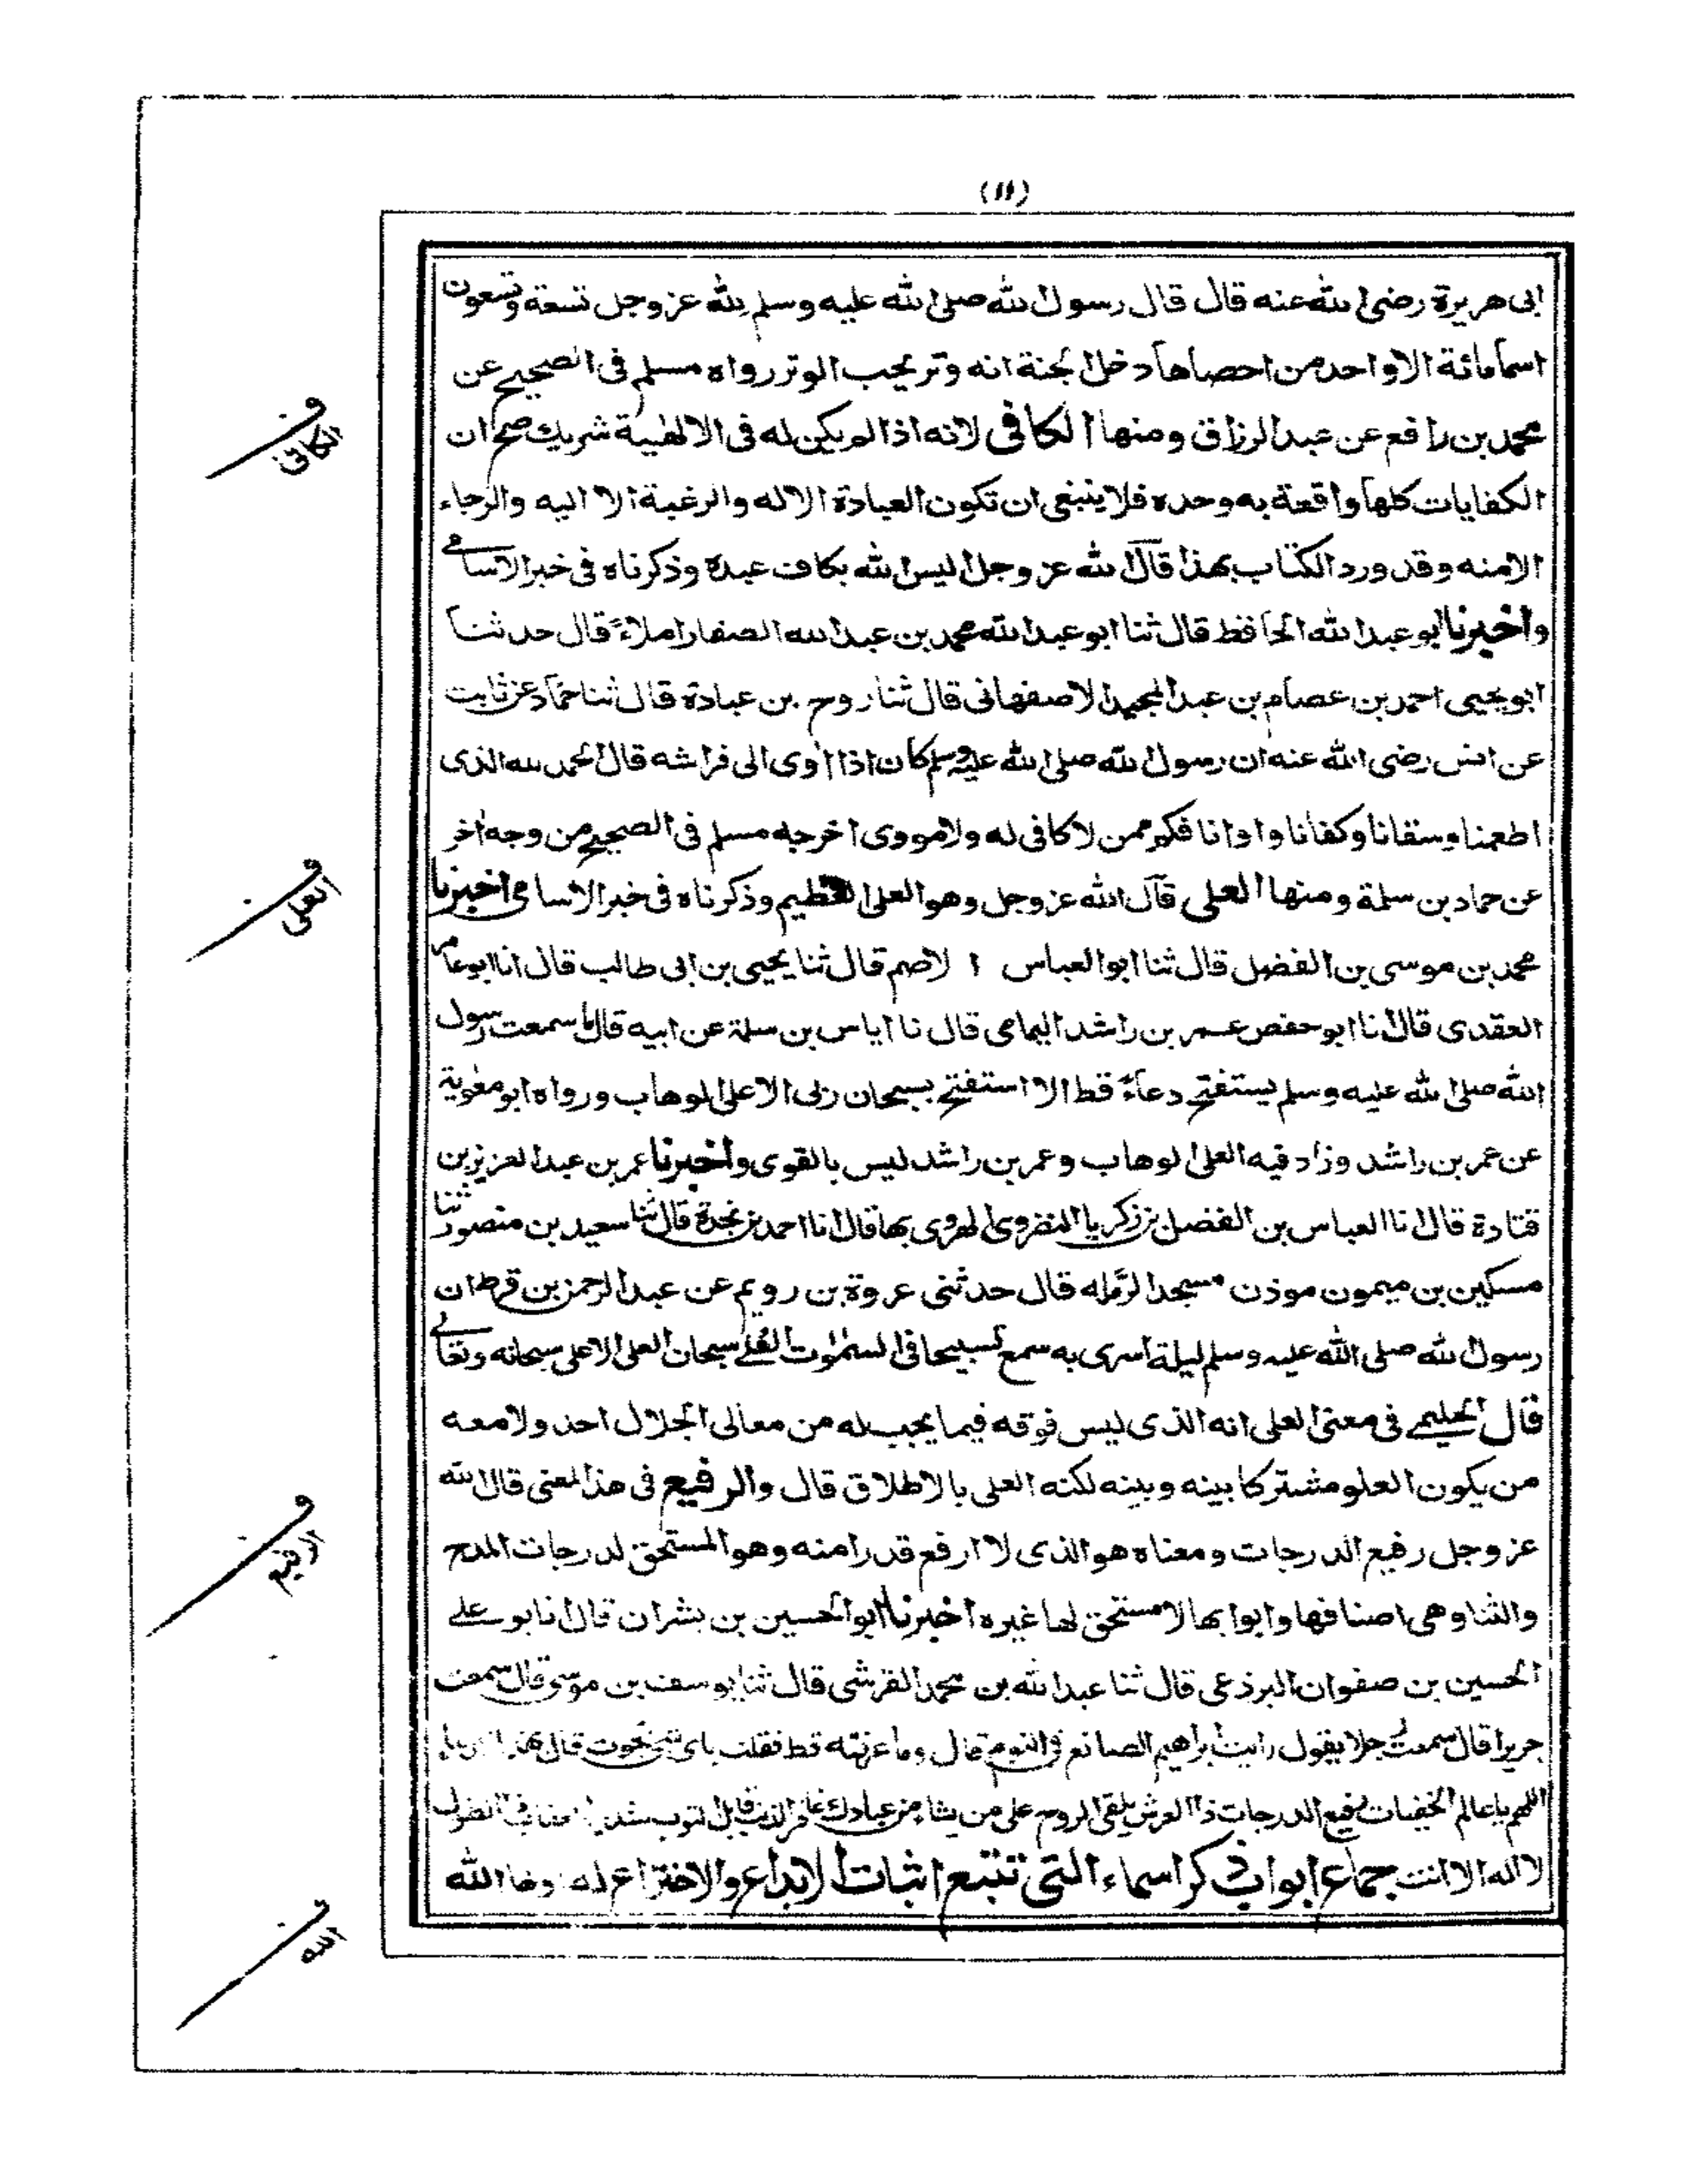 (١١)
ابى هريرة رضى الله عنه قال قال رسول الله صلى الله عليه وسلم لله عز وجل تسعة وتسعون
اسما مائة الا واحد من احصاها دخل الجنة انه وتر يحب الوتر رواه مسلم فى الصحيح عن
محمد بن رافع عن عبد الرزاق ومنها الكافى لانه اذا لم يكن له فى الالهية شريك صح ان
الكفايات كلها واقعة به وحده فلا ينبغى ان تكون العبادة الا له والرغبة الا اليه والرجاء
الا منه وقد ورد الكتاب بهذا قال الله عز وجل اليس الله بكاف عبده وذكرناه فى خبر الاسامى
واخبرنا ابو عبد الله الحافظ قال ثنا ابو عبد الله محمد بن عبد الله الصفار املاءً قال حدثنا
ابو يحيى احمد بن عصام بن عبد المجيد الاصفهانى قال ثنا روح بن عبادة قال ثنا حماد عن ثابت
عن انس رضى الله عنه ان رسول الله صلى الله عليه وسلم كان اذا اوى الى فراشه قال الحمد لله الذى
اطعمنا وسقانا وكفانا واوانا فكم ممن لا كافى له ولا مووى اخرجه مسلم فى الصحيح من وجه اخر
عن حماد بن سلمة ومنها العلى قال الله عز وجل وهو العلى العظيم وذكرناه فى خبر الاسامى اخبرنا
محمد بن موسى بن الفضل قال ثنا ابو العباس الاصم قال ثنا يحيى بن ابى طالب قال انا ابو عامر
العقدى قال نا ابو حفص عمر بن راشد اليمامى قال نا اياس بن سلمة عن ابيه قال ما سمعت رسول
الله صلى الله عليه وسلم يستفتح دعاءً قط الا استفتح بسبحان ربى الاعلى الوهاب ورواه ابو معوية
عن عمر بن راشد وزاد فيه العلى الوهاب وعمر بن راشد ليس بالقوى واخبرنا عمر بن عبد العزيز بن
قتادة قال انا العباس بن الفضل بن زكريا النضروى الهروى بها قال انا احمد بن نجدة قال ثنا سعيد بن منصور ثنا
مسكين بن ميمون موذن مسجد الرمله قال حدثنى عروة بن رويم عن عبد الرحمن بن قرط ان
رسول الله صلى الله عليه وسلم ليلة اسرى به سمع تسبيحا فى السموت العلى سبحان العلى الاعلى سبحانه وتعالى
قال الحليمى فى معنى العلى انه الذى ليس فوقه فيما يجب له من معالى الجلال احد ولا معه
من يكون العلو مشتركا بينه وبينه لكنه العلى بالاطلاق قال والرفيع فى هذا المعنى قال الله
عز وجل رفيع الدرجات ومعناه هو الذى لا ارفع قدرا منه وهو المستحق لدرجات المدح
والثنا وهى اصنافها وابوابها لا مستحق لها غيره اخبرنا ابو الحسين بن بشران قال انا ابو على
الحسين بن صفوان البرذعى قال ثنا عبد الله بن محمد القرشى قال ثنا يوسف بن موسى قال سمعت
جريرا قال سمعت رجلا يقول رايت ابراهيم الصائغ فى النوم قال وما عرفته قط فقلت باى شئ نجوت قال بهذا الدعاء
اللهم يا عالم الخفيات رفيع الدرجات ذا العرش يلقى الروح على من يشاء من عبادك غافر الذنب قابل التوب شديد العقاب ذى الطول
لا اله الا انت جماع ابواب ذكر اسماء التى تتبع اثبات الابداع والاختراع له ومنها الله
ف الكافى
ف العلى
ف الرفيع
ف الله